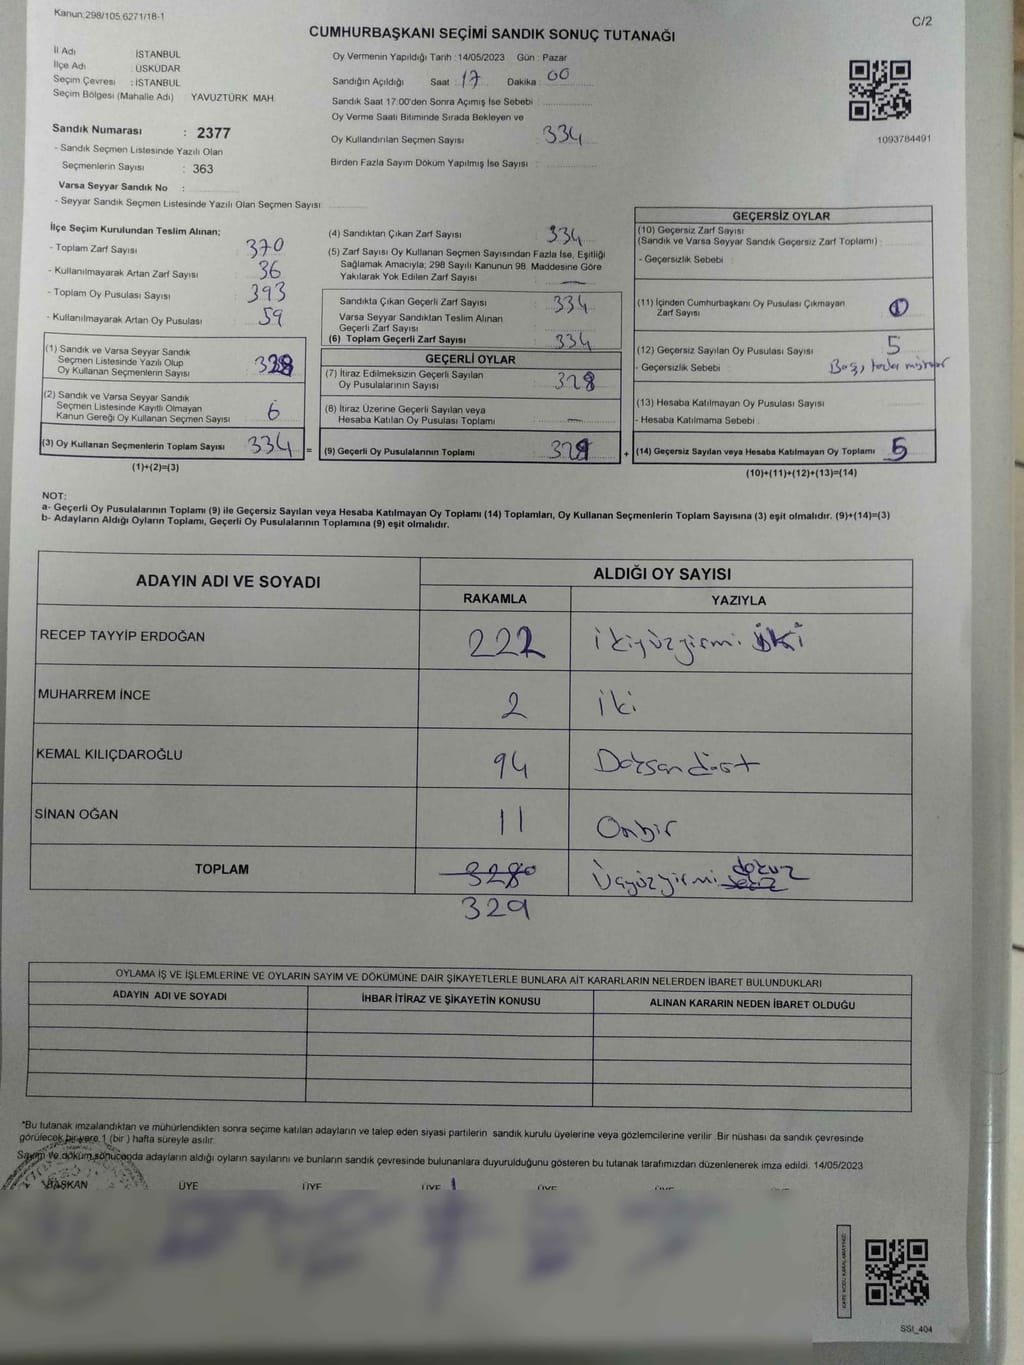 Kanun:298/105.6271/18-1
C/2
CUMHURBAŞKANI SEÇİMİ SANDIK SONUÇ TUTANAĞI
İl Adı İSTANBUL
İlçe Adı : ÜSKÜDAR
Seçim Çevresi : İSTANBUL
Seçim Bölgesi (Mahalle Adı) YAVUZTÜRK MAH.
Oy Vermenin Yapıldığı Tarih : 14/05/2023 Gün : Pazar
Sandığın Açıldığı Saat : 17 Dakika : 00
Sandık Saat 17:00'den Sonra Açımış İse Sebebi :
Oy Verme Saati Bitiminde Sırada Bekleyen ve
Oy Kullandırılan Seçmen Sayısı : 334
Birden Fazla Sayım Döküm Yapılmış İse Sayısı :
1093784491
Sandık Numarası : 2377
- Sandık Seçmen Listesinde Yazılı Olan
Seçmenlerin Sayısı : 363
Varsa Seyyar Sandık No :
- Seyyar Sandık Seçmen Listesinde Yazılı Olan Seçmen Sayısı :
İlçe Seçim Kurulundan Teslim Alınan;
- Toplam Zarf Sayısı : 370
- Kullanılmayarak Artan Zarf Sayısı : 36
- Toplam Oy Pusulası Sayısı : 393
- Kullanılmayarak Artan Oy Pusulası : 59
(1) Sandık ve Varsa Seyyar Sandık
Seçmen Listesinde Yazılı Olup
Oy Kullanan Seçmenlerin Sayısı : 328
(2) Sandık ve Varsa Seyyar Sandık
Seçmen Listesinde Kayıtlı Olmayan
Kanun Gereği Oy Kullanan Seçmen Sayısı : 6
(3) Oy Kullanan Seçmenlerin Toplam Sayısı : 334 =
(1)+(2)=(3)
(4) Sandıktan Çıkan Zarf Sayısı : 334
(5) Zarf Sayısı Oy Kullanan Seçmen Sayısından Fazla İse, Eşitliği
Sağlamak Amacıyla; 298 Sayılı Kanunun 98. Maddesine Göre
Yakılarak Yok Edilen Zarf Sayısı : —
Sandıkta Çıkan Geçerli Zarf Sayısı : 334
Varsa Seyyar Sandıktan Teslim Alınan
Geçerli Zarf Sayısı :
(6) Toplam Geçerli Zarf Sayısı : 334
GEÇERLİ OYLAR
(7) İtiraz Edilmeksizin Geçerli Sayılan
Oy Pusulalarının Sayısı : 328
(8) İtiraz Üzerine Geçerli Sayılan veya
Hesaba Katılan Oy Pusulası Toplamı : —
(9) Geçerli Oy Pusulalarının Toplamı : 329 +
GEÇERSİZ OYLAR
(10) Geçersiz Zarf Sayısı
(Sandık ve Varsa Seyyar Sandık Geçersiz Zarf Toplamı) :
- Geçersizlik Sebebi :
(11) İçinden Cumhurbaşkanı Oy Pusulası Çıkmayan
Zarf Sayısı :
(12) Geçersiz Sayılan Oy Pusulası Sayısı : 5
- Geçersizlik Sebebi :
(13) Hesaba Katılmayan Oy Pusulası Sayısı :
- Hesaba Katılmama Sebebi :
(14) Geçersiz Sayılan veya Hesaba Katılmayan Oy Toplamı : 5
(10)+(11)+(12)+(13)=(14)
NOT:
a- Geçerli Oy Pusulalarının Toplamı (9) ile Geçersiz Sayılan veya Hesaba Katılmayan Oy Toplamı (14) Toplamları, Oy Kullanan Seçmenlerin Toplam Sayısına (3) eşit olmalıdır. (9)+(14)=(3)
b- Adayların Aldığı Oyların Toplamı, Geçerli Oy Pusulalarının Toplamına (9) eşit olmalıdır.
ADAYIN ADI VE SOYADI
ALDIĞI OY SAYISI
RAKAMLA YAZIYLA
RECEP TAYYİP ERDOĞAN 222 ikiyüzyirmi iki
MUHARREM İNCE 2 iki
KEMAL KILIÇDAROĞLU 94 Doksan dört
SİNAN OĞAN 11 Onbir
TOPLAM 328 Üçyüzyirmi sekiz dokuz
329
OYLAMA İŞ VE İŞLEMLERİNE VE OYLARIN SAYIM VE DÖKÜMÜNE DAİR ŞİKAYETLERLE BUNLARA AİT KARARLARIN NELERDEN İBARET BULUNDUKLARI
ADAYIN ADI VE SOYADI İHBAR İTİRAZ VE ŞİKAYETİN KONUSU ALINAN KARARIN NEDEN İBARET OLDUĞU
*Bu tutanak imzalandıktan ve mühürlendikten sonra seçime katılan adayların ve talep eden siyasi partilerin sandık kurulu üyelerine veya gözlemcilerine verilir. Bir nüshası da sandık çevresinde
görülecek bir yere 1 (bir ) hafta süreyle asılır.
Sayım ve döküm sonucunda adayların aldığı oyların sayılarını ve bunların sandık çevresinde bulunanlara duyurulduğunu gösteren bu tutanak tarafımızdan düzenlenerek imza edildi. 14/05/2023
BAŞKAN ÜYE ÜYE ÜYE ÜYE
SSI_404